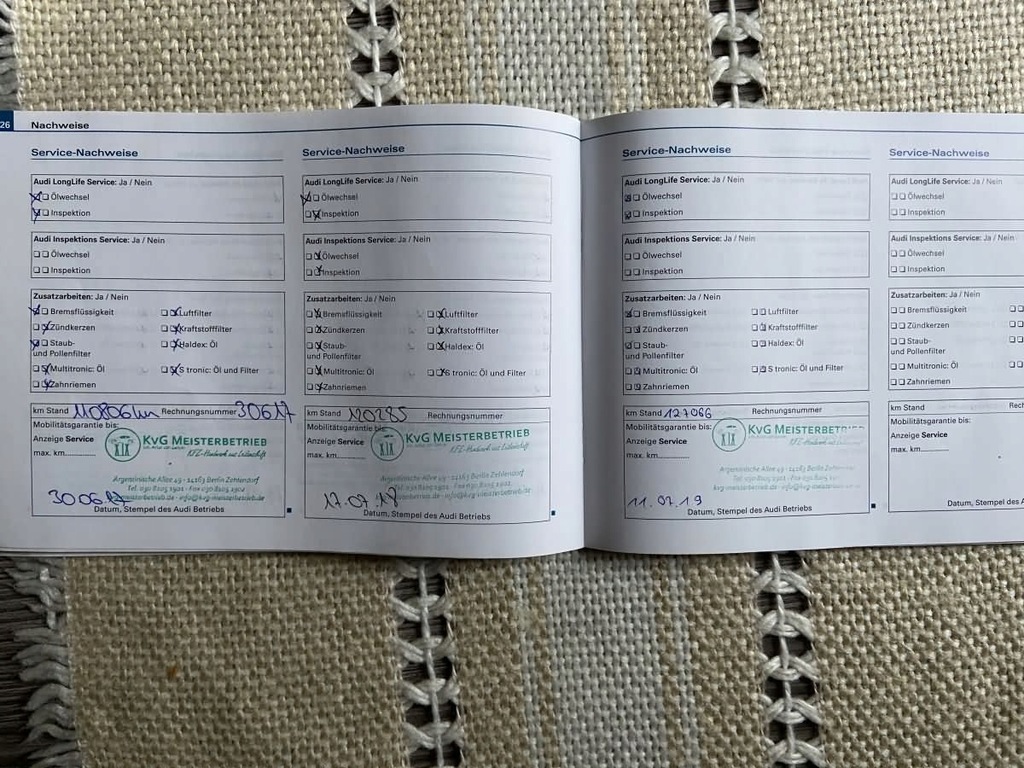 26 Nachweise
Service-Nachweise
Audi LongLife Service: Ja / Nein
Ölwechsel
Inspektion
Audi Inspektions Service: Ja / Nein
Ölwechsel
Inspektion
Zusatzarbeiten: Ja / Nein
Bremsflüssigkeit Luftfilter
Zündkerzen Kraftstofffilter
Staub- Haldex: Öl
und Pollenfilter
Multitronic: Öl S tronic: Öl und Filter
Zahnriemen
km Stand 110806km Rechnungsnummer 30617
Mobilitätsgarantie bis:
Anzeige Service
max. km
KvG MEISTERBETRIEB
KFZ-Handwerk mit Leidenschaft
Argentinische Allee 49 · 14163 Berlin Zehlendorf
Tel 030 8105 1901 · Fax 030 8105 1902
300617
Datum, Stempel des Audi Betriebs
Service-Nachweise
Audi LongLife Service: Ja / Nein
Ölwechsel
Inspektion
Audi Inspektions Service: Ja / Nein
Ölwechsel
Inspektion
Zusatzarbeiten: Ja / Nein
Bremsflüssigkeit Luftfilter
Zündkerzen Kraftstofffilter
Staub- Haldex: Öl
und Pollenfilter
Multitronic: Öl S tronic: Öl und Filter
Zahnriemen
km Stand 120285 Rechnungsnummer
Mobilitätsgarantie bis:
Anzeige Service
max. km
KvG MEISTERBETRIEB
KFZ-Handwerk mit Leidenschaft
Argentinische Allee 49 · 14163 Berlin Zehlendorf
17.07.18
Datum, Stempel des Audi Betriebs
Service-Nachweise
Audi LongLife Service: Ja / Nein
Ölwechsel
Inspektion
Audi Inspektions Service: Ja / Nein
Ölwechsel
Inspektion
Zusatzarbeiten: Ja / Nein
Bremsflüssigkeit Luftfilter
Zündkerzen Kraftstofffilter
Staub- Haldex: Öl
und Pollenfilter
Multitronic: Öl S tronic: Öl und Filter
Zahnriemen
km Stand 127066 Rechnungsnummer
Mobilitätsgarantie bis:
Anzeige Service
max. km
KvG MEISTERBETRIEB
Argentinische Allee 49 · 14163 Berlin Zehlendorf
11.07.19
Datum, Stempel des Audi Betriebs
Service-Nachweise
Audi LongLife Service: Ja / Nein
Ölwechsel
Inspektion
Audi Inspektions Service: Ja / Nein
Ölwechsel
Inspektion
Zusatzarbeiten: Ja / Nein
Bremsflüssigkeit
Zündkerzen
Staub-
und Pollenfilter
Multitronic: Öl
Zahnriemen
km Stand Rech
Mobilitätsgarantie bis:
Anzeige Service
max. km
Datum, Stempel des A